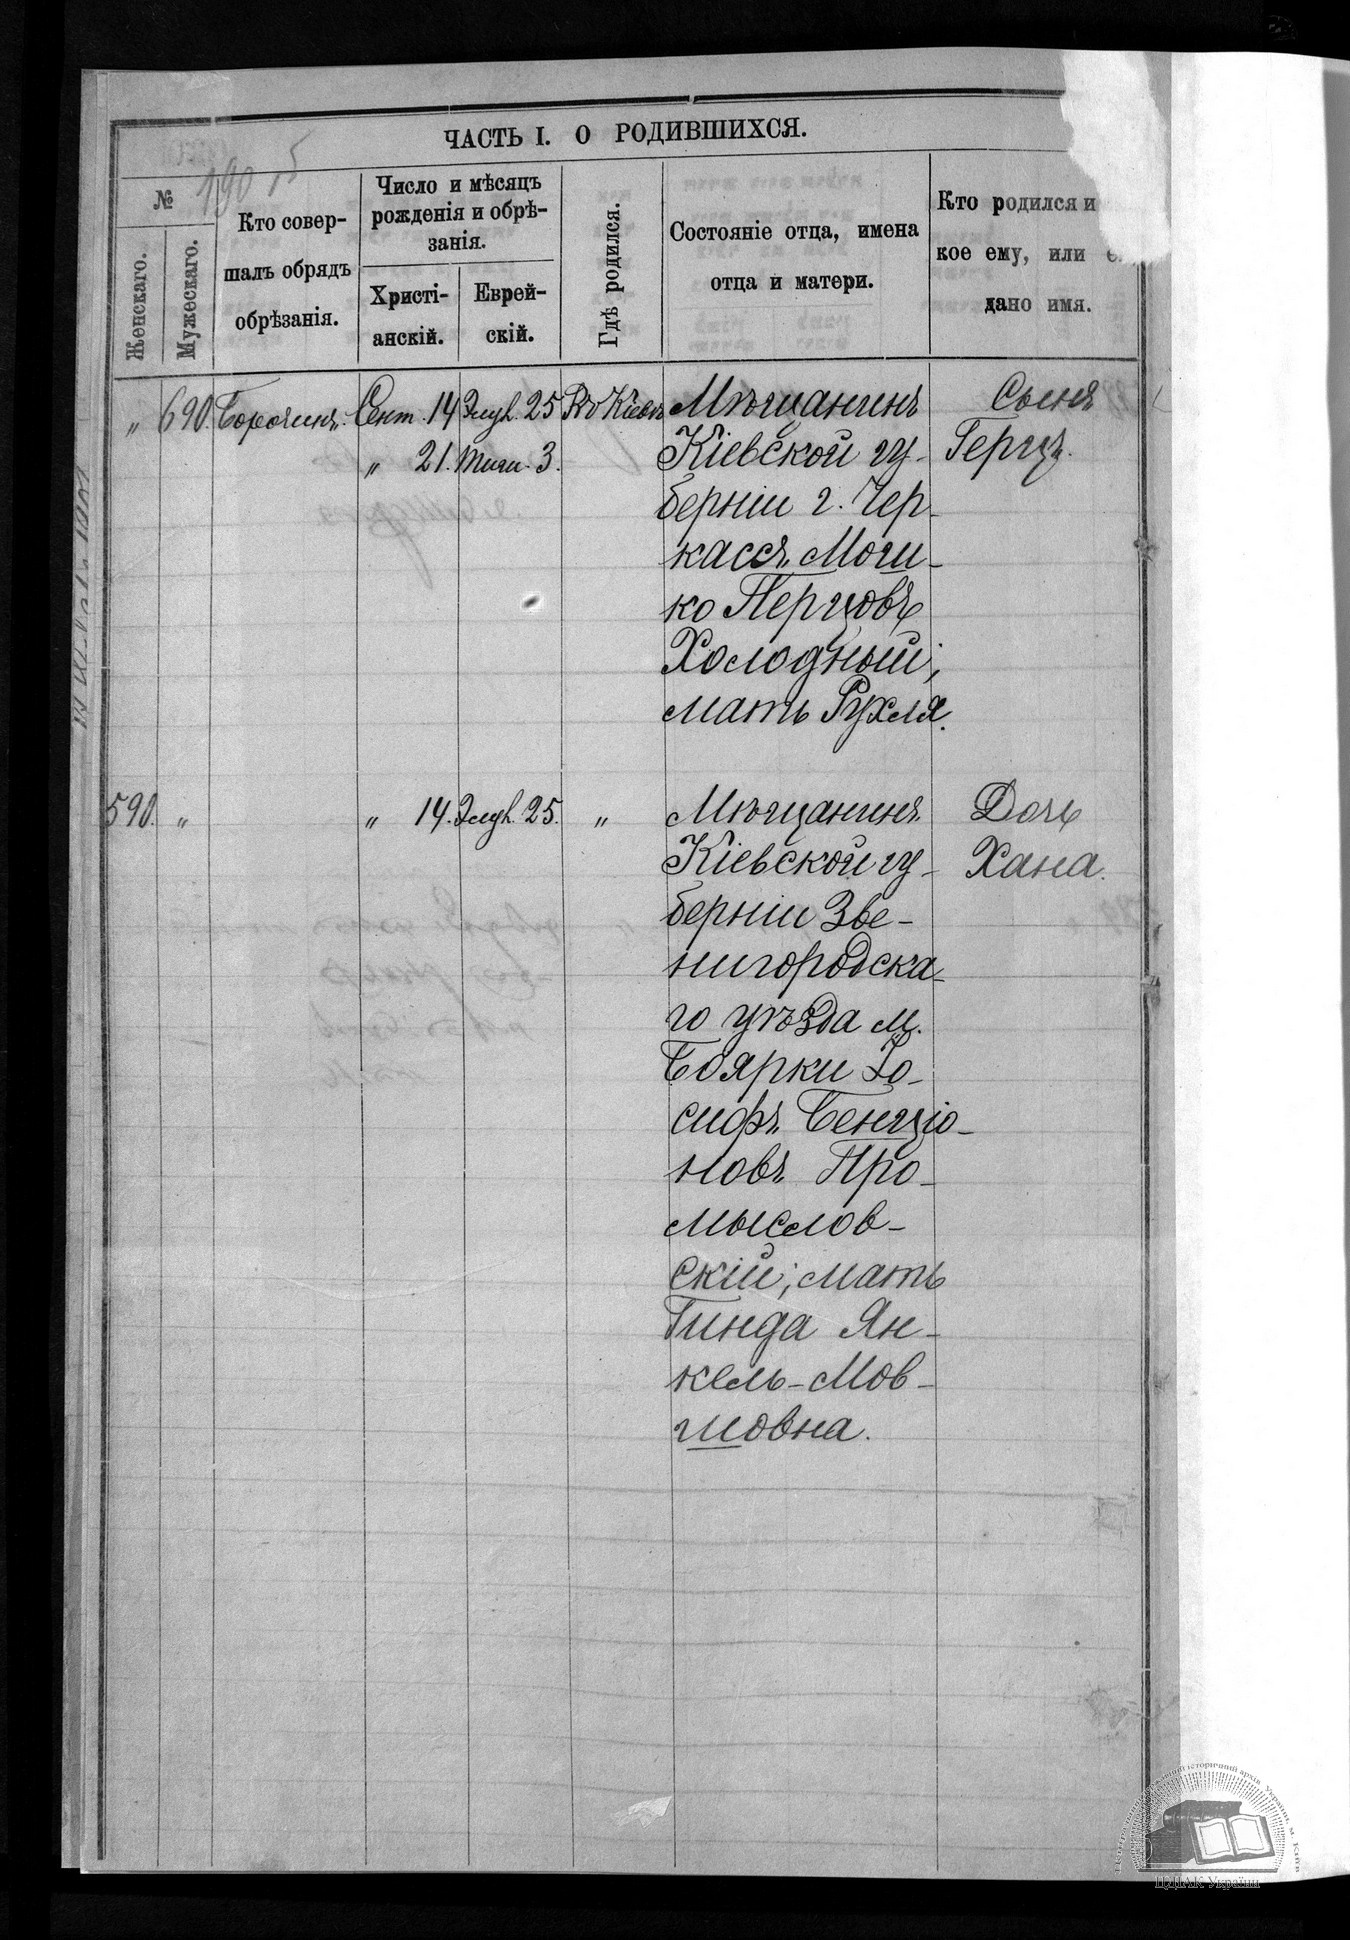 ЧАСТЬ I. О РОДИВШИХСЯ.
190 5
№
Женскаго.
Мужескаго.
Кто совер-
шалъ обрядъ
обрѣзанія.
Число и мѣсяцъ
рожденія и обрѣ-
занія.
Христі-
анскій.
Еврей-
скій.
Гдѣ родился.
Состояніе отца, имена
отца и матери.
Кто родился и
кое ему, или
дано имя.
„ 690. Сент. 14 Элул. 25 Въ Кіевѣ Мѣщанинъ Сынъ
„ 21. Тиш. 3. Кіевской гу- Герцъ.
берніи г. Чер-
кассъ Моши-
ко Перцовъ
Холодный;
мать Рухля.
590. „ „ 14. Элул. 25. „ Мѣщанинъ Дочь
Кіевской гу- Хана.
берніи Зве-
нигородска-
го уѣзда м.
Боярки Іо-
сифъ Бенціо-
новъ Про-
мыслов-
скій; мать
Гинда Ян-
кель-Мов-
шовна.
ЦДІАК України